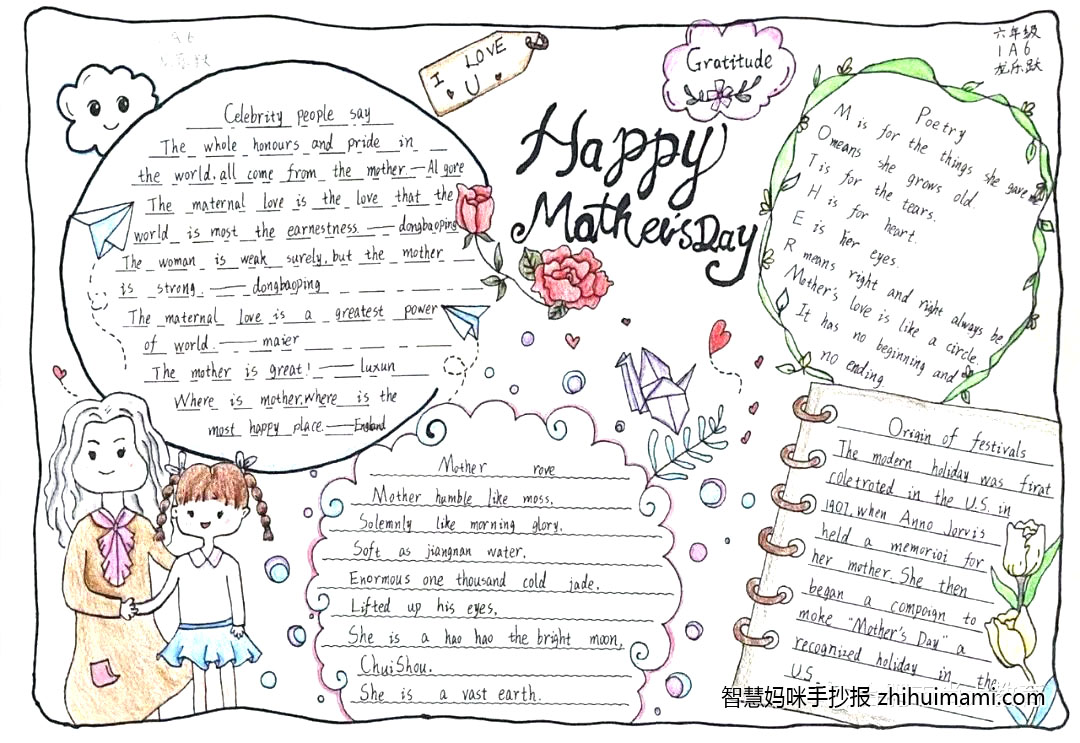 I LOVE
U
Gratitude
六年级
1A6
龙乐跃
Happy
Mother'sDay
Celebrity people say
The whole honours and pride in
the world.all come from the mother.—Al gore
The maternal love is the love that the
world is most the earnestness —— dongbaoping
The woman is weak surely,but the mother
is strong. —— dongbaoping
The maternal love is a greatest power
of world. —— maier
The mother is great! —— luxun
Where is mother,where is the
most happy place.——England
Poetry
M is for the things she gave me
O means she grows old.
T is for the tears.
H is for heart.
E is her eyes.
R means right and right always be
Mother's love is like a circle.
It has no beginning and
no ending.
Mother rove
Mother humble like moss.
Solemnly like morning glory.
Soft as jiangnan water.
Enormous one thousand cold jade.
Lifted up his eyes,
She is a hao hao the bright moon,
ChuiShou.
She is a vast earth.
Origin of festivals
The modern holiday was first
coletroted in the U.S. in
1907.when Anno Jorvis
held a memorioi for
her mother.She then
began a compoign to
moke "Mother's Day" a
recognized holiday in the
U.S.
智慧妈咪手抄报 zhihuimami.com